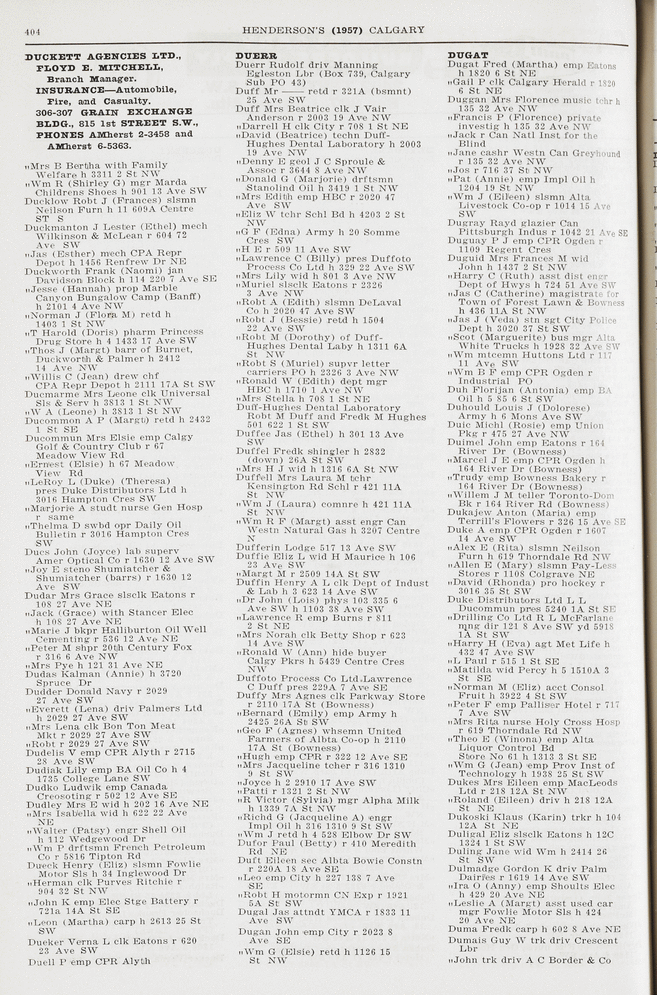 404
HENDERSON'S (1957) CALGARY
DUCKETT AGENCIES LTD.,
FLOYD E. MITCHELL,
Branch Manager.
INSURANCE—Automobile,
Fire, and Casualty.
306-307 GRAIN EXCHANGE
BLDG., 815 1st STREET S.W.,
PHONES AMherst 2-3458 and
AMherst 6-5363.
„Mrs B Bertha with Family
Welfare h 3311 2 St NW
„Wm R (Shirley G) mgr Marda
Childrens Shoes h 901 13 Ave SW
Ducklow Robt J (Frances) slsmn
Neilson Furn h 11 609A Centre
ST S
Duckmanton J Lester (Ethel) mech
Wilkinson & McLean r 604 72
Ave SW
„Jas (Esther) mech CPA Repr
Depot h 1456 Renfrew Dr NE
Duckworth Frank (Naomi) jan
Davidson Block h 114 220 7 Ave SE
„Jesse (Hannah) prop Marble
Canyon Bungalow Camp (Banff)
h 2101 4 Ave NW
„Norman J (Flora M) retd h
1403 1 St NW
„T Harold (Doris) pharm Princess
Drug Store h 4 1433 17 Ave SW
„Thos J (Margt) barr of Burnet,
Duckworth & Palmer h 2412
14 Ave NW
„Willis C (Jean) drew chf
CPA Repr Depot h 2111 17A St SW
Ducmarme Mrs Leone clk Universal
Sls & Serv h 3813 1 St NW
„W A (Leone) h 3813 1 St NW
Ducommon A P (Margt) retd h 2432
1 St SE
Ducommun Mrs Elsie emp Calgy
Golf & Country Club r 67
Meadow View Rd
„Ernest (Elsie) h 67 Meadow
View Rd
„LeRoy L (Duke) (Theresa)
pres Duke Distributors Ltd h
3016 Hampton Cres SW
„Marjorie A studt nurse Gen Hosp
r same
„Thelma D swbd opr Daily Oil
Bulletin r 3016 Hampton Cres
SW
Ducs John (Joyce) lab superv
Amer Optical Co r 1630 12 Ave SW
„Joy E steno Shumiatcher &
Shumiatcher (barrs) r 1630 12
Ave SW
Dudar Mrs Grace slsclk Eatons r
108 27 Ave NE
„Jack (Grace) with Stancer Elec
h 108 27 Ave NE
„Marie J bkpr Halliburton Oil Well
Cementing r 536 12 Ave NE
„Peter M shpr 20th Century Fox
r 316 6 Ave NW
„Mrs Pye h 121 31 Ave NE
Dudas Kalman (Annie) h 3720
Spruce Dr
Dudder Donald Navy r 2029
27 Ave SW
„Everett (Lena) driv Palmers Ltd
h 2029 27 Ave SW
„Mrs Lena clk Bon Ton Meat
Mkt r 2029 27 Ave SW
„Robt r 2029 27 Ave SW
Dudelis V emp CPR Alyth r 2715
28 Ave SW
Dudiak Lily emp BA Oil Co h 4
1735 College Lane SW
Dudko Ludwik emp Canada
Creosoting r 502 12 Ave SE
Dudley Mrs E wid h 202 16 Ave NE
„Mrs Isabella wid h 622 22 Ave
NE
„Walter (Patsy) engr Shell Oil
h 112 Wedgewood Dr
„Wm P drftsmn French Petroleum
Co r 5816 Tipton Rd
Dueck Henry (Eliz) slsmn Fowlie
Motor Sls h 34 Inglewood Dr
„Herman clk Purves Ritchie r
904 32 St NW
„John K emp Elec Stge Battery r
721a 14A St SE
„Leon (Martha) carp h 2613 25 St
SW
Dueker Verna L clk Eatons r 620
23 Ave SW
Duell P emp CPR Alyth
DUERR
Duerr Rudolf driv Manning
Egleston Lbr (Box 739, Calgary
Sub PO 43)
Duff Mr —— retd r 321A (bsmnt)
25 Ave SW
Duff Mrs Beatrice clk J Vair
Anderson r 2003 19 Ave NW
„Darrell H clk City r 708 1 St NE
„David (Beatrice) techn Duff-
Hughes Dental Laboratory h 2003
19 Ave NW
„Denny E geol J C Sproule &
Assoc r 3644 8 Ave NW
„Donald G (Marjorie) drftsmn
Stanolind Oil h 3419 1 St NW
„Mrs Edith emp HBC r 2020 47
Ave SW
„Eliz W tchr Schl Bd h 4203 2 St
NW
„G F (Edna) Army h 20 Somme
Cres SW
„H E r 509 11 Ave SW
„Lawrence C (Billy) pres Duffoto
Process Co Ltd h 329 22 Ave SW
„Mrs Lily wid h 801 3 Ave NW
„Muriel slsclk Eatons r 2326
3 Ave NW
„Robt A (Edith) slsmn DeLaval
Co h 2020 47 Ave SW
„Robt J (Bessie) retd h 1504
22 Ave SW
„Robt M (Dorothy) of Duff-
Hughes Dental Laby h 1311 6A
St NW
„Robt S (Muriel) supvr letter
carriers PO h 2326 3 Ave NW
„Ronald W (Edith) dept mgr
HBC h 1710 1 Ave NW
„Mrs Stella h 708 1 St NE
Duff-Hughes Dental Laboratory
Robt M Duff and Fredk M Hughes
501 622 1 St SW
Duffee Jas (Ethel) h 301 13 Ave
SW
Duffel Fredk shingler h 2832
(down) 26A St SW
„Mrs H J wid h 1316 6A St NW
Duffell Mrs Laura M tchr
Kensington Rd Schl r 421 11A
St NW
„Wm J (Laura) comnre h 421 11A
St NW
„Wm R F (Margt) asst engr Can
Westn Natural Gas h 3207 Centre
N
Dufferin Lodge 517 13 Ave SW
Duffie Eliz L wid H Maurice h 106
23 Ave SW
„Margt M r 2509 14A St SW
Duffin Henry A L clk Dept of Indust
& Lab h 3 623 14 Ave SW
„Dr John (Lois) phys 103 335 6
Ave SW h 1103 38 Ave SW
„Lawrence R emp Burns r 811
2 St NE
„Mrs Norah clk Betty Shop r 623
14 Ave SW
„Ronald W (Ann) hide buyer
Calgy Pkrs h 5439 Centre Cres
NW
Duffoto Process Co Ltd.Lawrence
C Duff pres 229A 7 Ave SE
Duffy Mrs Agnes clk Parkway Store
r 2110 17A St (Bowness)
„Bernard (Emily) emp Army h
2425 26A St SW
„Geo F (Agnes) whsemn United
Farmers of Albta Co-op h 2110
17A St (Bowness)
„Hugh emp CPR r 322 12 Ave SE
„Mrs Jacqueline tcher r 316 1310
9 St SW
„Joyce h 2 2910 17 Ave SW
„Patti r 1321 2 St NW
„R Victor (Sylvia) mgr Alpha Milk
h 1339 7A St NW
„Richd G (Jacqueline A) engr
Impl Oil h 316 1310 9 St SW
„Wm J retd h 4 528 Elbow Dr SW
Dufor Paul (Betty) r 410 Meredith
Rd NE
Duft Eileen sec Albta Bowie Constn
r 220A 18 Ave SE
„Leo emp City h 227 138 7 Ave
SE
„Robt H motormn CN Exp r 1921
5A St SW
Dugal Jas attndt YMCA r 1833 11
Ave SW
Dugan John emp City r 2023 8
Ave SE
„Wm G (Elsie) retd h 1126 15
St NW
DUGAT
Dugat Fred (Martha) emp Eatons
h 1820 6 St NE
„Gail P clk Calgary Herald r 1820
6 St NE
Duggan Mrs Florence music tchr h
135 32 Ave NW
„Francis P (Florence) private
investig h 135 32 Ave NW
„Jack r Can Natl Inst for the
Blind
„Jane cashr Westn Can Greyhound
r 135 32 Ave NW
„Jos r 716 37 St NW
„Pat (Annie) emp Impl Oil h
1204 19 St NW
„Wm J (Eileen) slsmn Alta
Livestock Co-op r 1014 15 Ave
SW
Dugray Rayd glazier Can
Pittsburgh Indus r 1042 21 Ave SE
Duguay P J emp CPR Ogden r
1109 Regent Cres
Duguid Mrs Frances M wid
John h 1437 2 St NW
„Harry C (Ruth) asst dist engr
Dept of Hwys h 724 51 Ave SW
„Jas C (Catherine) magistrate for
Town of Forest Lawn & Bowness
h 436 11A St NW
„Jas J (Veda) stn sgt City Police
Dept h 3020 37 St SW
„Scot (Marguerite) bus mgr Alta
White Trucks h 1928 32 Ave SW
„Wm mtcemn Huttons Ltd r 117
11 Ave SW
„Wm B F emp CPR Ogden r
Industrial PO
Duh Florijan (Antonia) emp BA
Oil h 5 85 6 St SW
Duhould Louis J (Dolorese)
Army h 6 Mons Ave SW
Duic Michl (Rosie) emp Union
Pkg r 475 27 Ave NW
Duimel John emp Eatons r 164
River Dr (Bowness)
„Marcel J E emp CPR Ogden h
164 River Dr (Bowness)
„Trudy emp Bowness Bakery r
164 River Dr (Bowness)
„Willem J M teller Toronto-Dom
Bk r 164 River Rd (Bowness)
Dukajew Anton (Maria) emp
Terrill's Flowers r 326 15 Ave SE
Duke A emp CPR Ogden r 1607
14 Ave SW
„Alex E (Rita) slsmn Neilson
Furn h 619 Thorndale Rd NW
„Allen E (Mary) slsmn Pay-Less
Stores r 1108 Colgrave NE
„David (Rhonda) pro hockey r
3016 35 St SW
Duke Distributors Ltd L L
Ducommun pres 5240 1A St SE
„Drilling Co Ltd R L McFarlane
mng dir 121 8 Ave SW yd 5918
1A St SW
„Harry H (Eva) agt Met Life h
432 47 Ave SW
„L Paul r 515 1 St SE
„Matilda wid Percy h 5 1510A 3
St SE
„Norman M (Eliz) acct Consol
Fruit h 3922 4 St SW
„Peter F emp Palliser Hotel r 717
7 Ave SW
„Mrs Rita nurse Holy Cross Hosp
r 619 Thorndale Rd NW
„Theo E (Winona) emp Alta
Liquor Control Bd
Store No 61 h 1313 3 St SE
„Wm G (Jean) emp Prov Inst of
Technology h 1938 25 St SW
Dukes Mrs Eileen emp MacLeods
Ltd r 218 12A St NW
„Roland (Eileen) driv h 218 12A
St NE
Dukoski Klaus (Karin) trkr h 104
12A St NE
Duligal Eliz slsclk Eatons h 12C
1324 1 St SW
Duling Jane wid Wm h 2414 26
St SW
Dulmadge Gordon K driv Palm
Dairies r 1619 14 Ave SW
„Ira O (Anny) emp Shoults Elec
h 429 20 Ave NE
„Leslie A (Margt) asst used car
mgr Fowlie Motor Sls h 424
20 Ave NE
Duma Fredk carp h 602 8 Ave NE
Dumais Guy W trk driv Crescent
Lbr
„John trk driv A C Border & Co